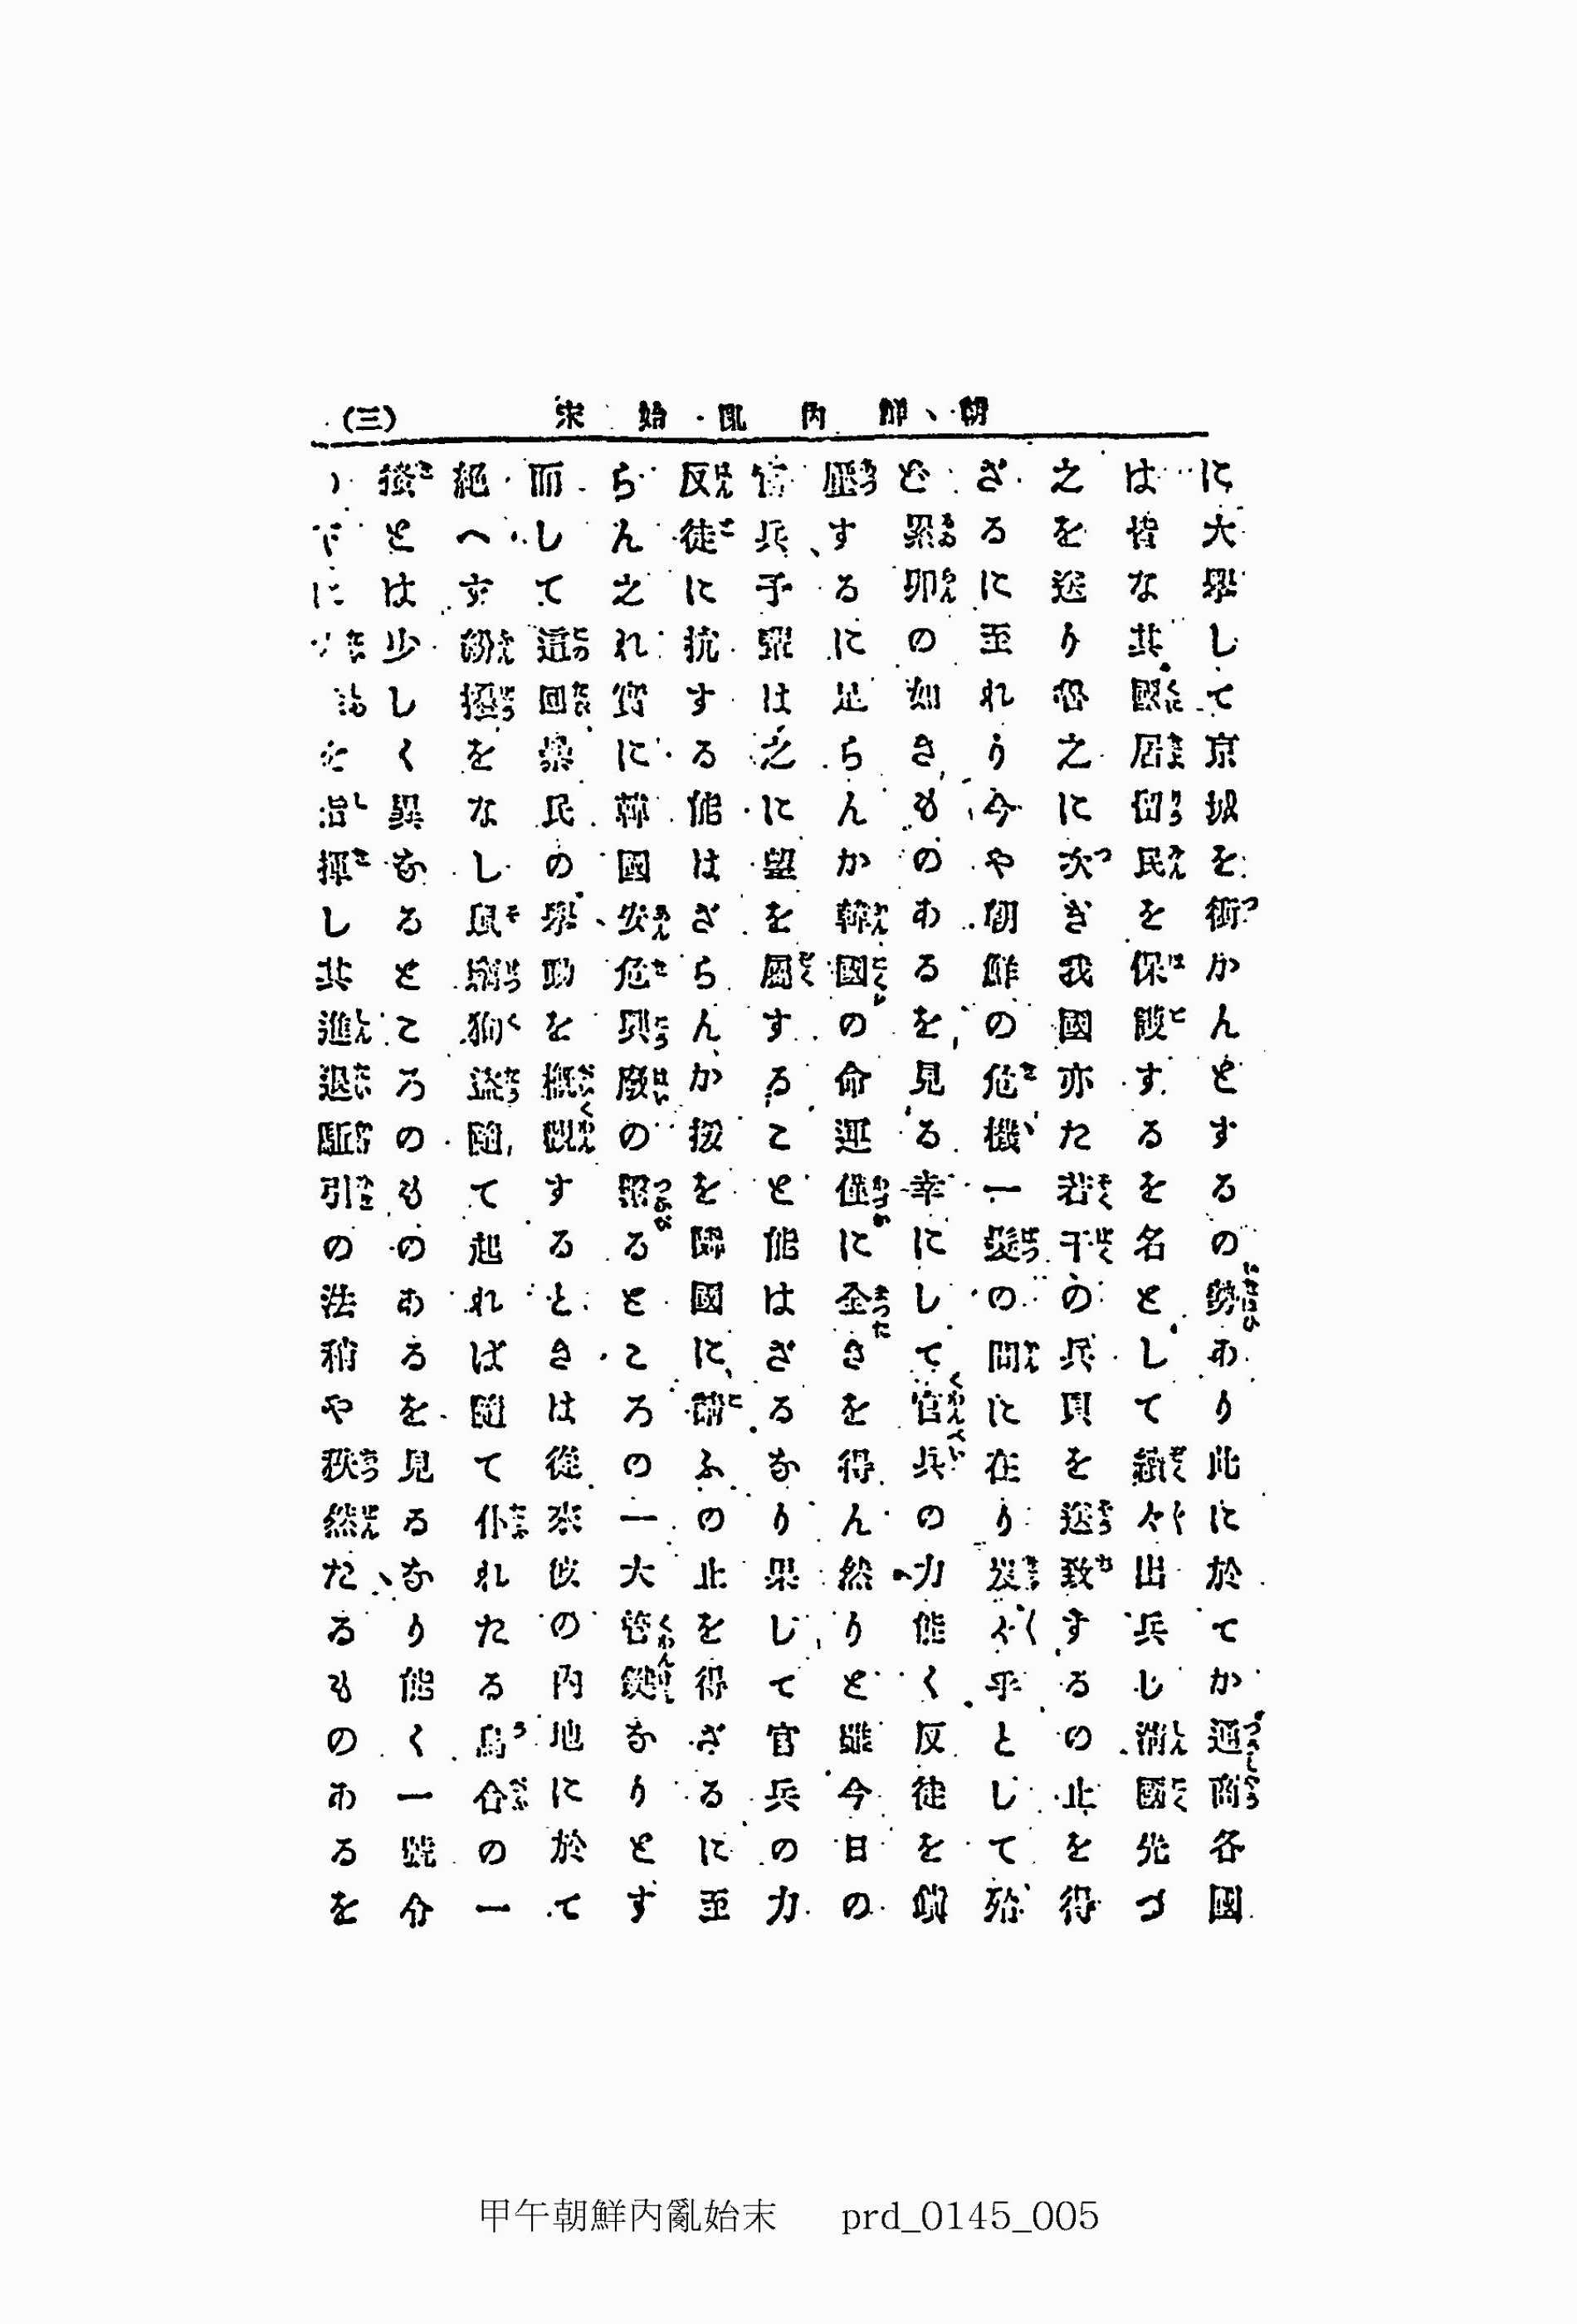 朝鮮內亂始末
(三)
に大擧して京城を衝かんとするの勢あり此に於てか通商各國
は皆な其國居留民を保護するを名として續々出兵し淸國先づ
之を送り尋之に次ぎ我國亦た若干の兵員を送致するの止を得
ざるに至れり今や朝鮮の危機一髮の間に在り岌々乎として殆
ど累卵の如きものあるを見る幸にして官兵の力能く反徒を鎭
壓するに足らんか韓國の命運僅に全きを得ん然りと雖今日の
官兵、予輩は之に望を屬すること能はざるなり果して官兵の力
反徒に抗する能はざらんか援を隣國に請ふの止を得ざるに至
らん之れ實に韓國安危興廢の繫るところの一大管鍵なりとす
而して這回暴民の擧動を概觀するときは從來彼の內地に於て
絕へず紛擾をなし鼠竊狗盜隨て起れば隨て仆れたる烏合の一
揆とは少しく異なるところのものあるを見るなり能く一號令
の下に
を指揮し其進退駈引の法稍や秩然たるものあるを
甲午朝鮮內亂始末 prd_0145_005